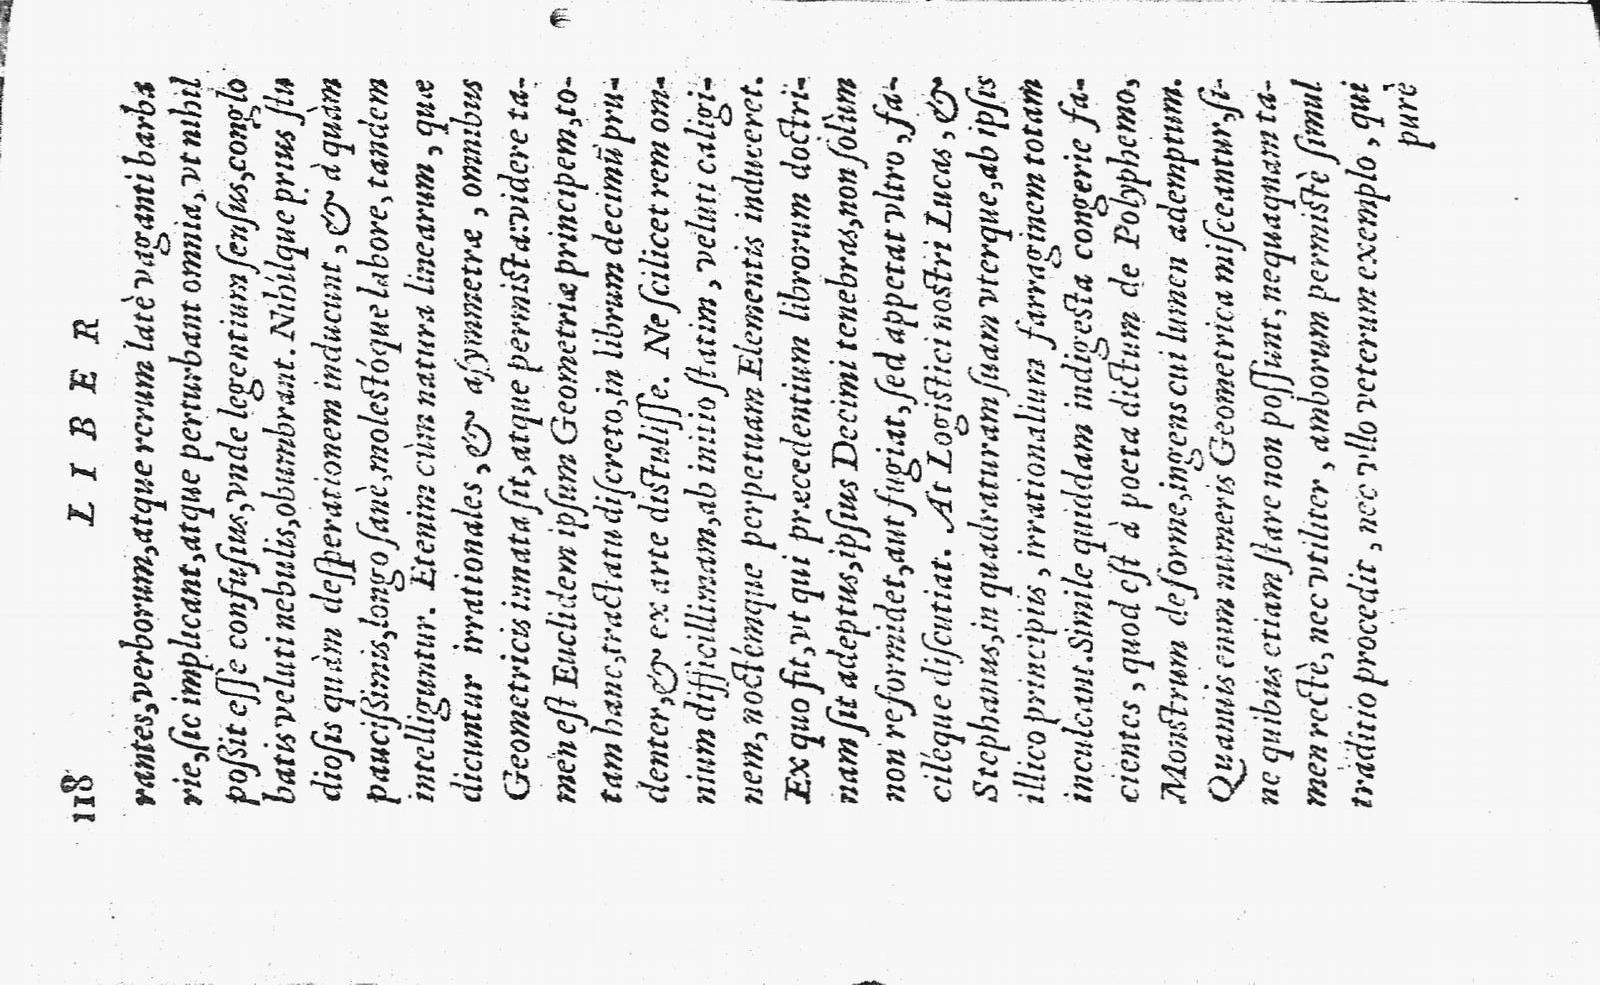 118 LIBER
rantes,verborum,atque rerum latè vaganti barba
rie,sic implicant,atque perturbant omnia, vt nihil
poßit esse confusius,vnde legentium sensus,conglo
batis veluti nebulis,obumbrant. Nihilque prius stu
diosis quàm desperationem inducunt, & à quàm
paucißimis,longo sanè,molestóque labore, tandem
intelliguntur. Etenim cùm natura linearum, quæ
dicuntur irrationales, & asymmetræ, omnibus
Geometricis innata sit,atque permista:videre ta-
men est Euclidem ipsum Geometriæ principem,to-
tam hanc,tractatu discreto,in librum decimũ pru-
denter,& ex arte distulisse. Ne scilicet rem om-
nium difficillimam,ab initio statim, veluti caligi-
nem, noctémque perpetuam Elementis induceret.
Ex quo fit,vt qui præcedentium librorum doctri-
nam sit adeptus,ipsius Decimi tenebras,non solùm
non reformidet,aut fugiat,sed appetat vltro, fa-
ciléque discutiat. At Logistici nostri Lucas, &
Stephanus,in quadraturam suam vterque,ab ipsis
illico principiis, irrationalium farraginem totam
inculcant.Simile quiddam indigesta congerie fa-
cientes, quod est à poeta dictum de Polyphemo,
Monstrum deforme,ingens cui lumen ademptum.
Quanuis enim numeris Geometrica misceantur,si-
ne quibus etiam stare non possunt, nequaquam ta-
men rectè, nec vtiliter, amborum permistè simul
traditio procedit, nec vllo veterum exemplo, qui
purè